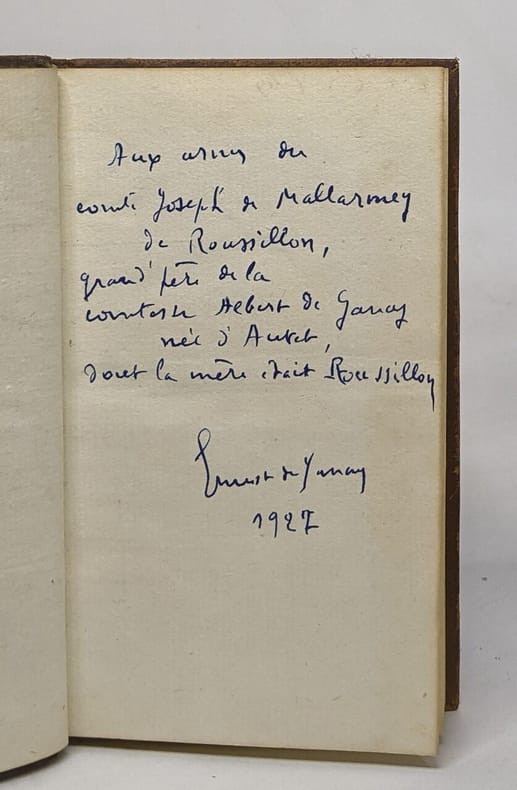 Aux armes du
comte Joseph de Mallarmey
de Roussillon,
grand'père de la
comtesse Albert de Ganay
née d'Autet,
dont la mère était Roussillon
Ernest de Ganay
1927